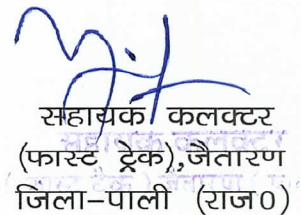 सहायक कलक्टर
(फास्ट ट्रेक),जैतारण
जिला-पाली (राज0)